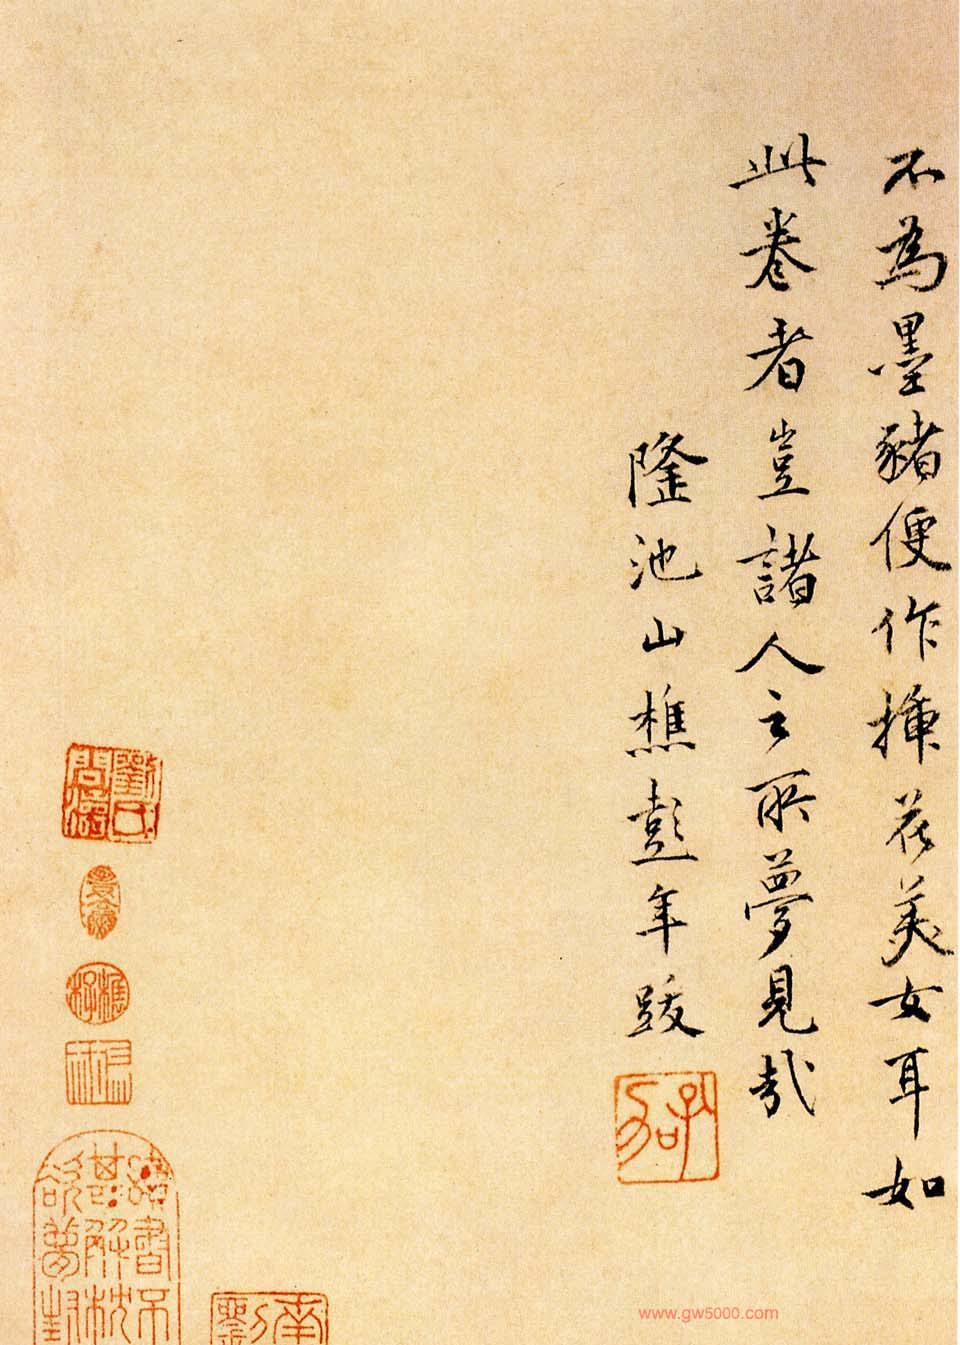 不為墨豬便作插花美女耳如
此卷者豈諸人之所夢見哉
隆池山樵彭年跋
孔加
www.gw5000.com